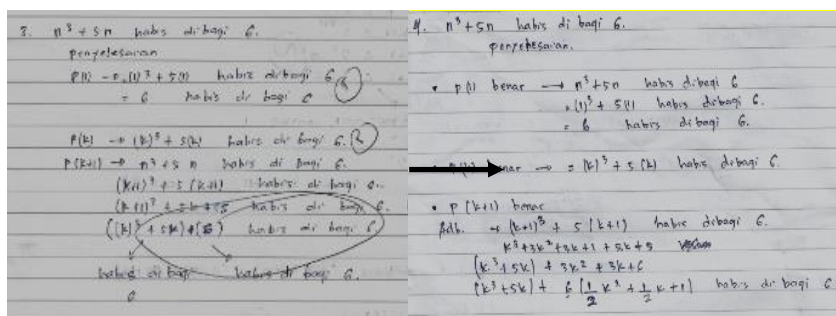 3. n³ + 5n habis dibagi 6.
penyelesaian
P(1) → (1)³ + 5(1) habis dibagi 6
= 6 habis di bagi 6
P(k) → (k)³ + 5(k) habis di bagi 6.
P(k+1) → n³ + 5n habis di bagi 6.
(k+1)³ + 5(k+1) habis di bagi 6.
(k+1)³ + 5k + 5 habis di bagi 6.
((k)³ + 5k) + (6) habis di bagi 6
habis di bagi habis di bagi 6.
6
4. n³ + 5n habis di bagi 6.
penyelesaian.
• P(1) benar → n³ + 5n habis dibagi 6
= (1)³ + 5(1) habis dibagi 6.
= 6 habis dibagi 6.
→ = (k)³ + 5(k) habis dibagi 6.
• P(k+1) benar
Adb. → (k+1)³ + 5(k+1) habis dibagi 6.
k³ + 3k² + 3k + 1 + 5k + 5
(k³ + 5k) + 3k² + 3k + 6
(k³ + 5k) + 6(1/2 k² + 1/2 k + 1) habis di bagi 6